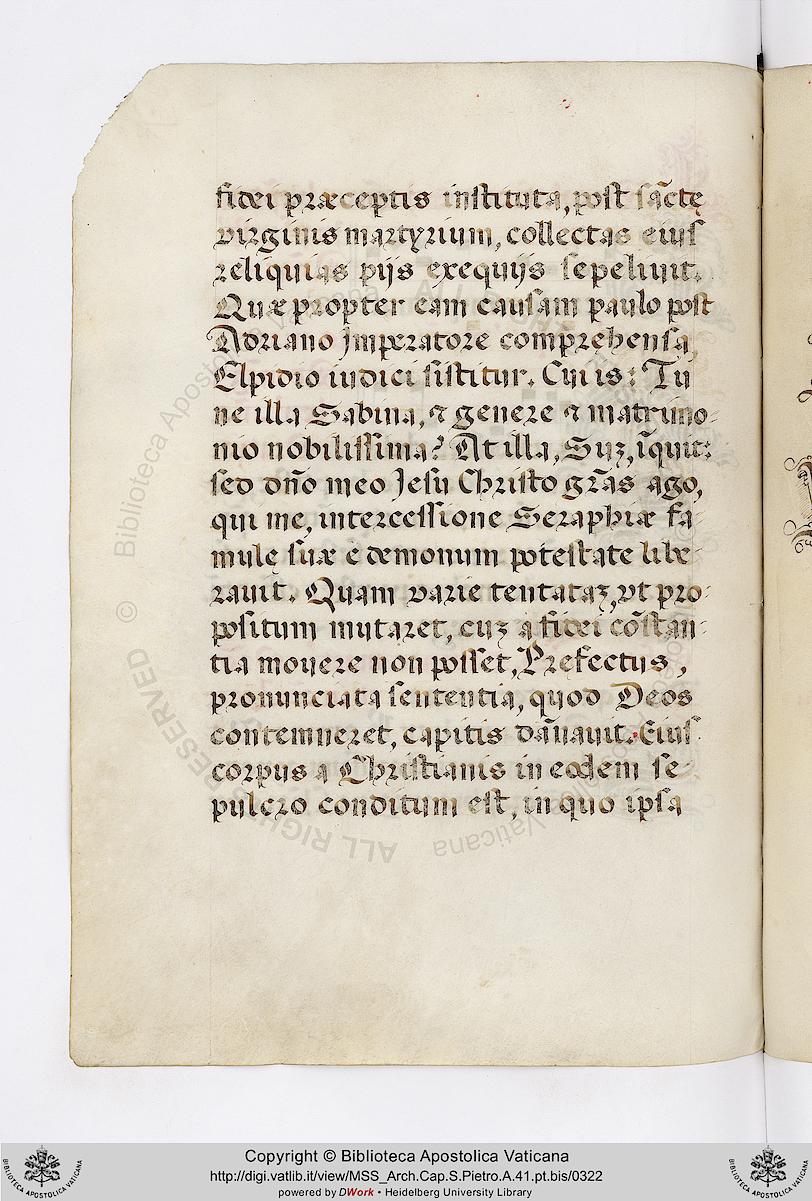 fidei præceptis instituta, post sãctę
virginis martyrium, collectas eius
reliquias pijs exequijs sepeliuit.
Quæ propter eam causam paulo post
Adriano Imperatore comprehensa,
Elpidio iudici sistitur. Cui is: Tu
ne illa Sabina, & genere & matrimo-
nio nobilissima? At illa, Suȝ, ĩquit:
sed dño meo Jesu Christo grãs ago,
qui me, intercessione Seraphiæ fa-
mulę suæ è demonum potestate libe-
rauit. Quam varie tentataȝ, vt pro-
positum mutaret, cuȝ a fidei cõstan-
tia mouere non posset, Prefectus,
pronunciata sententia, quod Deos
contemneret, capitis dãnauit. Eius
corpus a Christianis in eodem se-
pulcro conditum est, in quo ipsa
Biblioteca Apostolica Vaticana
© ALL RIGHTS RESERVED
Copyright © Biblioteca Apostolica Vaticana
http://digi.vatlib.it/view/MSS_Arch.Cap.S.Pietro.A.41.pt.bis/0322
powered by DWork • Heidelberg University Library
BIBLIOTECA APOSTOLICA VATICANA
BIBLIOTECA APOSTOLICA VATICANA